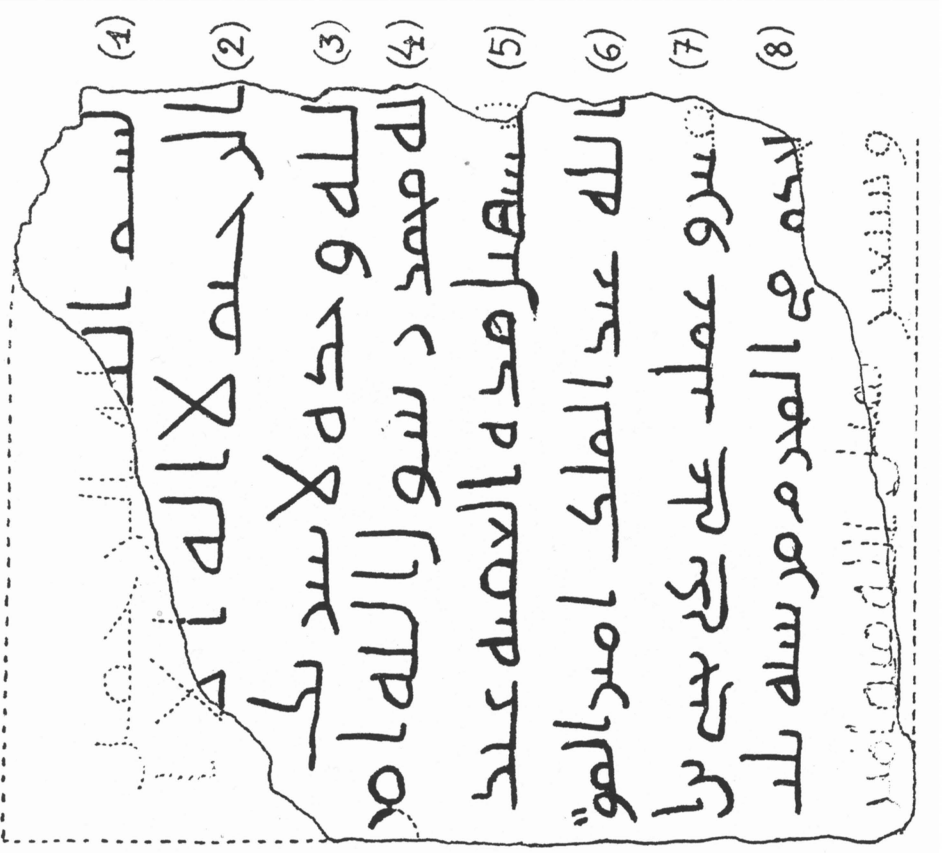 (1) بسم الله الرحمن ا
(2) لرحيم لا اله الا
(3) الله وحده لا شريك
(4) له محمد رسول الله امر
(5) بتسهيل هذه العقبه عبد
(6) الله عبد الملك امير المؤ
(7) منين وعملت على يدي يحيى بن ا
(8) لحكم في المحرم من سنه ثلث
وسبعين